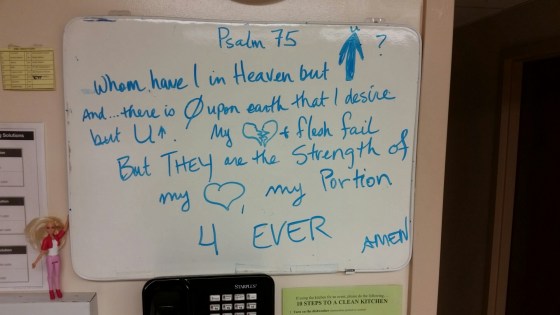 Psalm 75
u
Whom have I in Heaven but ↑ ?
And...there is Ø upon earth that I desire
but U↑. My ♡ + flesh fail
But THEY are the Strength of
my ♡, my Portion
4 EVER
AMEN
10 STEPS TO A CLEAN KITCHEN